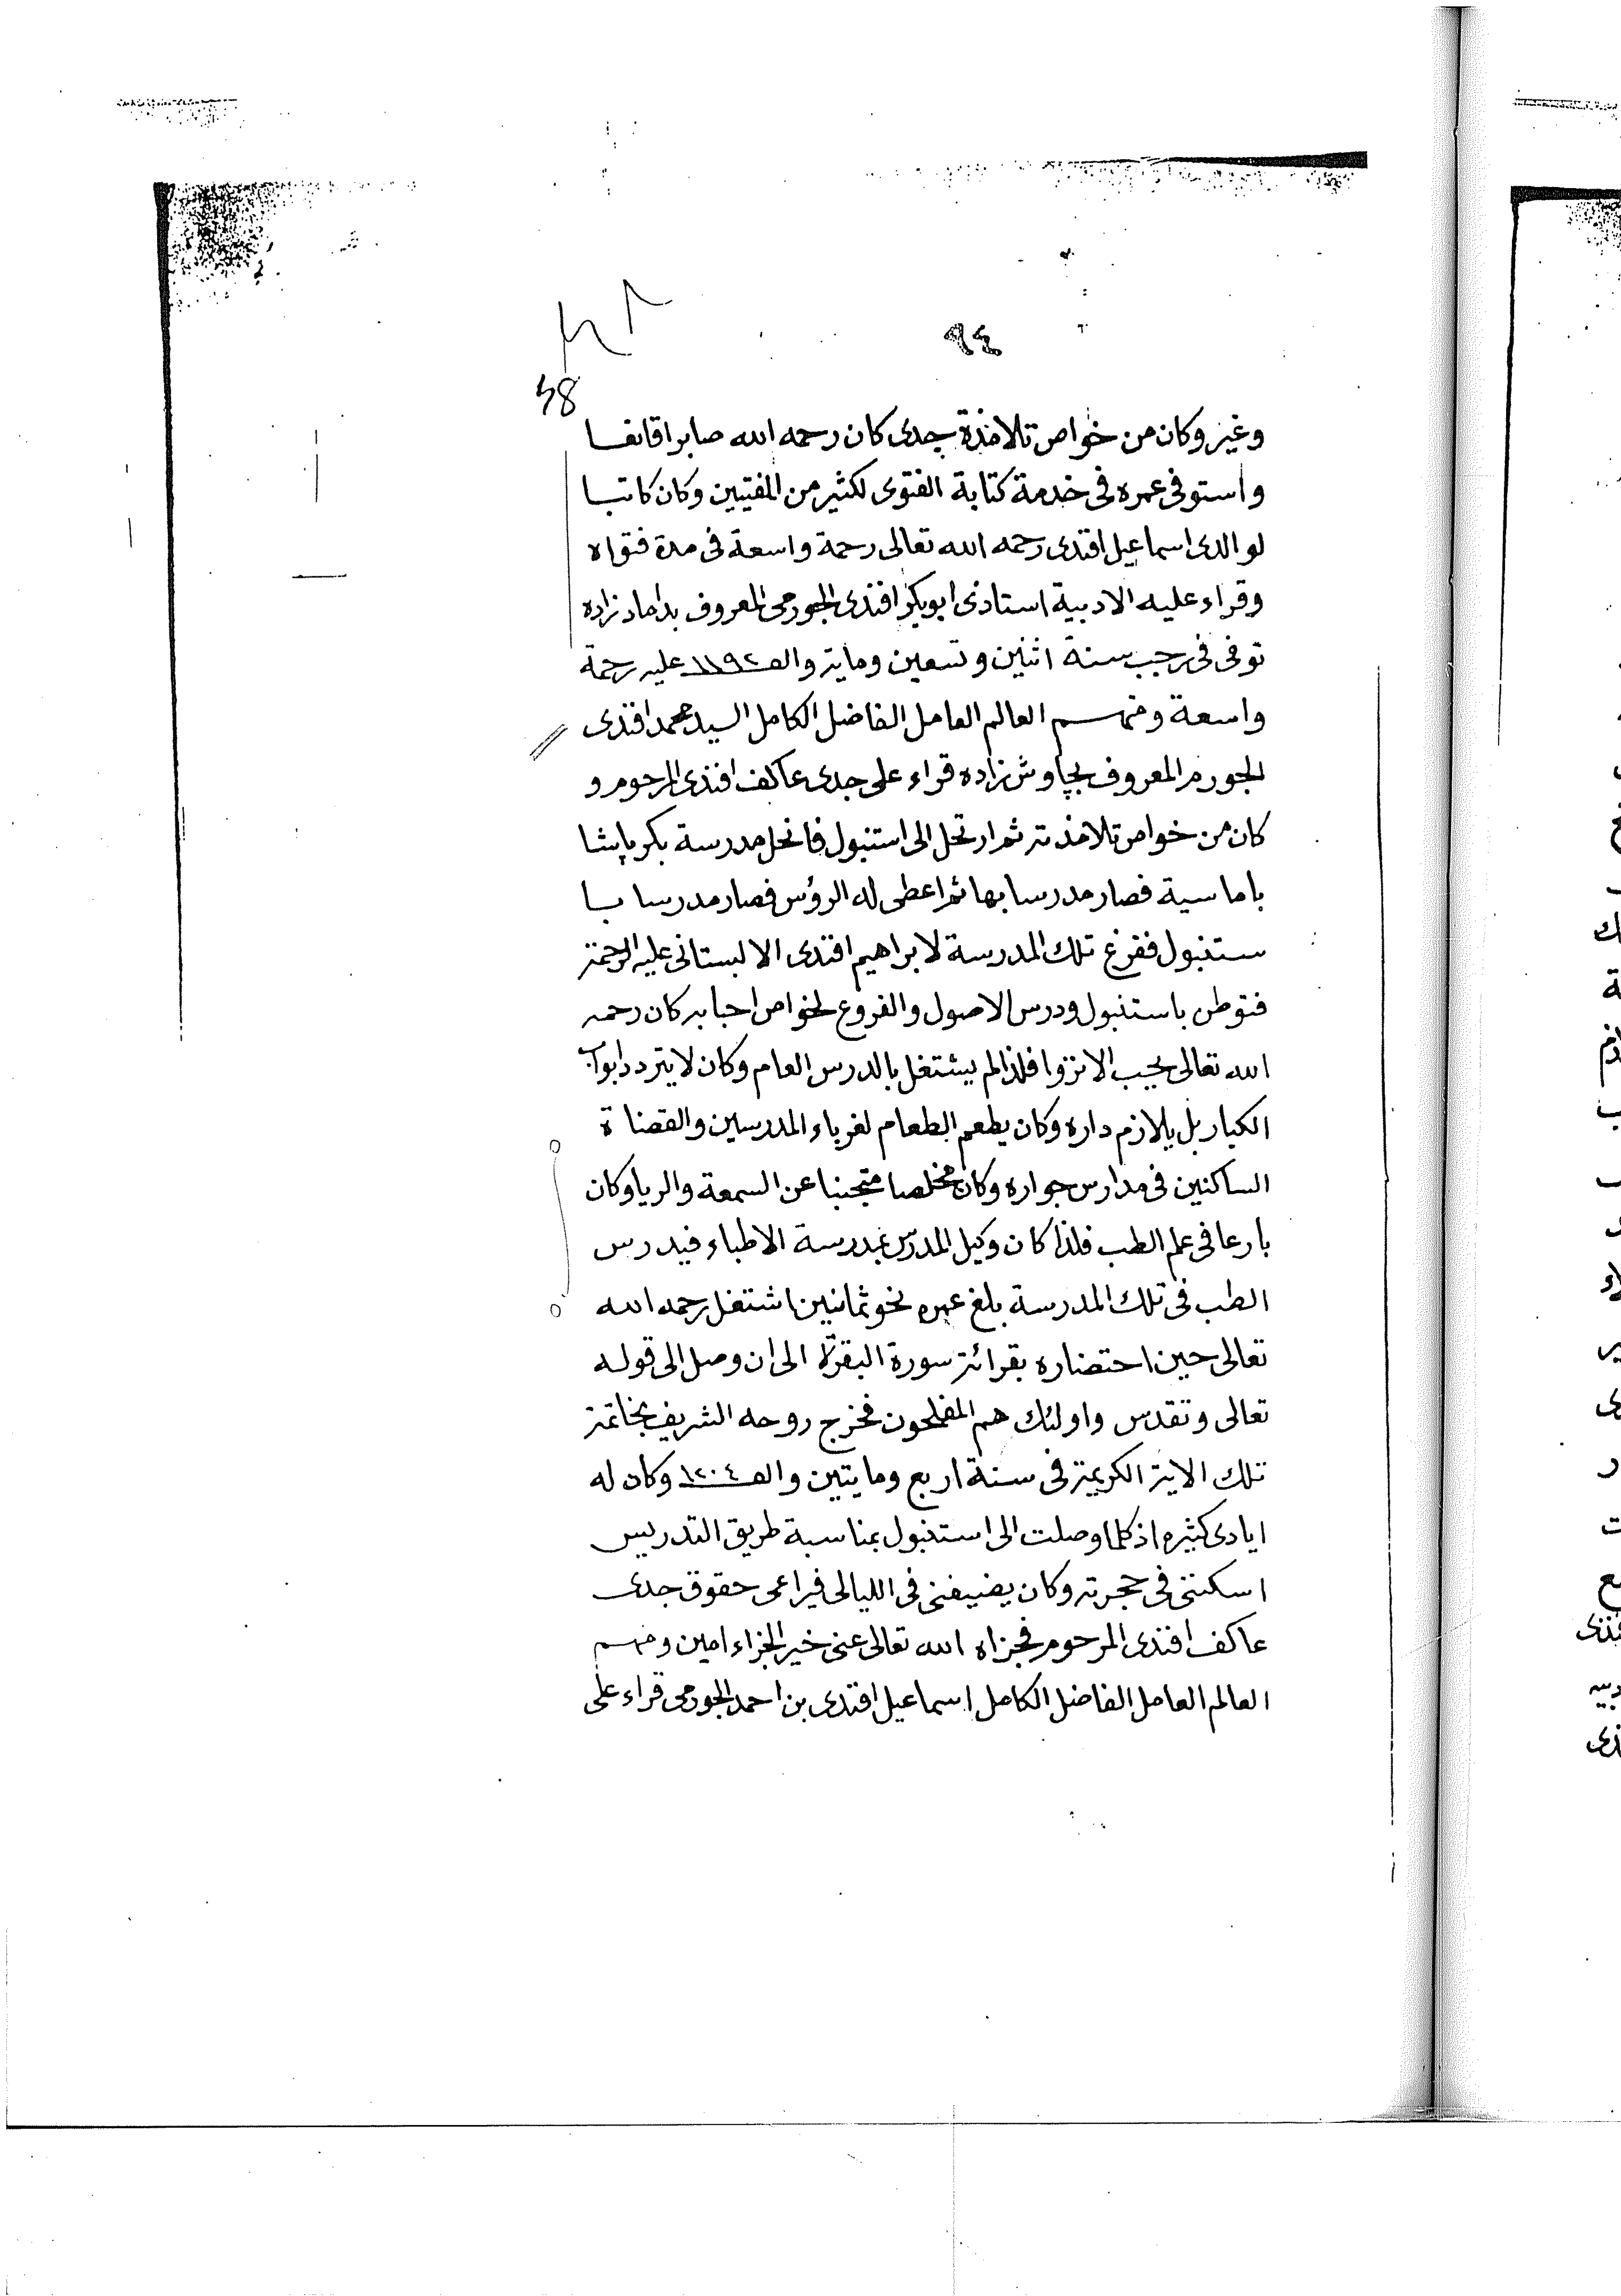 ٩٤
48
وغير وكان من خواص تلامذة جدى كان رحمه الله صابرا قانعا
واستوفى عمره فى خدمة كتابة الفتوى لكثير من المفتيين وكان كاتبا
لوالدى اسماعيل افندى رحمه الله تعالى رحمة واسعة فى مدة فتواه
وقراء عليه الادبية استادنى ابوبكر افندى الجورمى المعروف بداماد زاده
توفى فى رجب سنة اثنين وتسعين وماية والف ١١٩٢ عليه رحمة
واسعة ومنهم العالم العامل الفاضل الكامل السيد محمد افندى
الجورم المعروف بچاوش زاده قراء على جدى عاكف افندى المرحوم و
كان من خواص تلامذته ثم ارتحل الى استنبول فانحل مدرسة بكر پاشا
باماسية فصار مدرسا بها ثم اعطى له الرؤس فصار مدرسا با
ستنبول ففرغ تلك المدرسة لابراهيم افندى الالبستانى عليه الرحمة
فتوطن باستنبول ودرس الاصول والفروع لخواص احبابه كان رحمه
الله تعالى يحيب الانزوا فلذا لم يشتغل بالدرس العام وكان لا يتردد ابواب
الكبار بل يلازم داره وكان يطعم الطعام لغرباء المدرسين والقضاة
الساكنين فى مدارس جواره وكان مخلصا متجنبا عن السمعة والريا وكان
بارعا فى علم الطب فلذا كان وكيل المدرس بمدرسة الاطباء فيدرس
الطب فى تلك المدرسة بلغ عمره نحو ثمانين اشتغل رحمه الله
تعالى حين احتضاره بقرائة سورة البقرة الى ان وصل الى قوله
تعالى وتقدس واولئك هم المفلحون فخرج روحه الشريف بخاتمة
تلك الاية الكريمة فى سنة اربع ومايتين والف ١٢٠٤ وكان له
ايادى كثيره اذ كلما وصلت الى استنبول بمناسبة طريق التدريس
اسكننى فى حجرته وكان يضيفنى فى الليالى فيراعى حقوق جدى
عاكف افندى المرحوم فجزاه الله تعالى عنى خير الجزاء امين ومنهم
العالم العامل الفاضل الكامل اسماعيل افندى بن احمد الجورمى قراء على